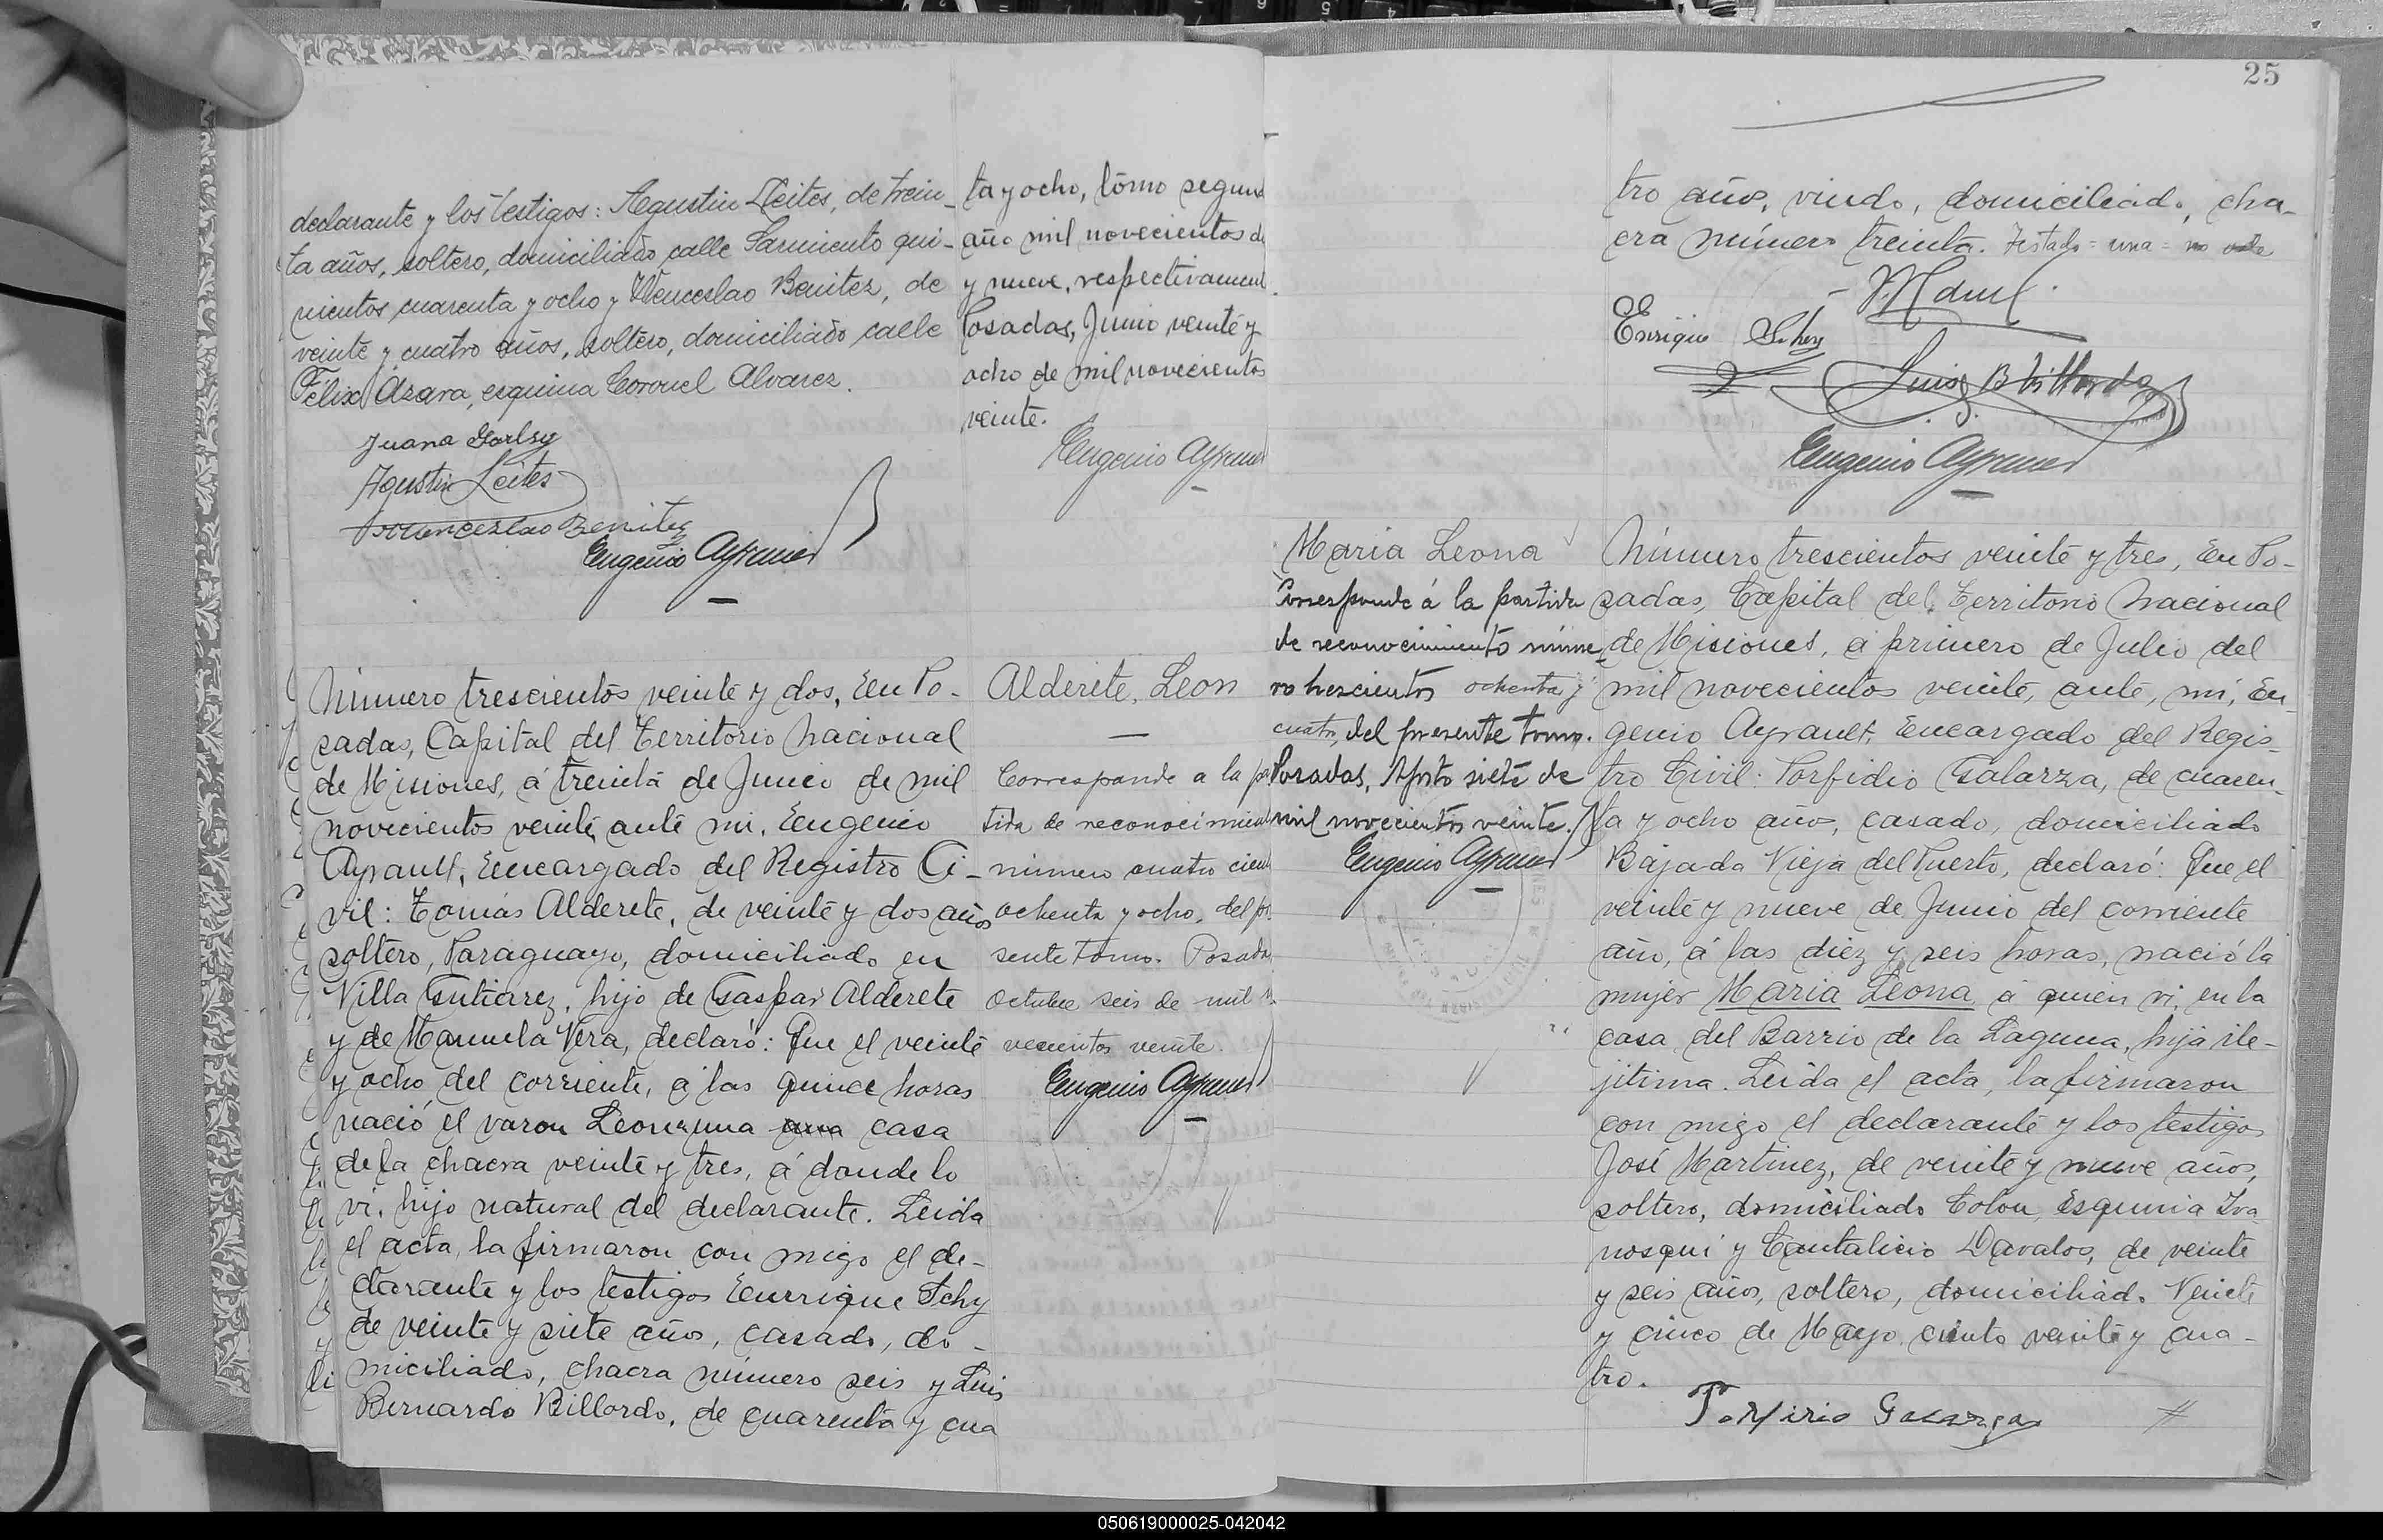 declarante y los testigos: Agustin Leites, de trein-
ta años, soltero, domiciliado calle Sarmiento qui-
nientos cuarenta y ocho y Wenceslao Benitez, de
veinte y cuatro años, soltero, domiciliado calle
Félix Azara, esquina Coronel Alvarez.
Juana
Agustin Leites
Wenceslao Benitez
Eugenio Ayrault
ta y ocho, tomo segund
año mil novecientos di
y nueve, respectivament
Posadas, Junio veinte y
ocho de mil novecientos
veinte.
Eugenio Ayrault
Número trescientos veinte y dos, En Po-
sadas, Capital del Territorio Nacional
de Misiones, á treinta de Junio de mil
novecientos veinte, ante mi, Eugenio
Ayrault, Encargado del Registro Ci-
vil: Tomás Alderete, de veinte y dos años
soltero, Paraguayo, domiciliado en
Villa Gutiarez, hijo de Gaspar Alderete
y de Manuela Vera, declaró: Que el veinte
y ocho del corriente, á las quince horas
nació el varon Leon, en una una casa
de la chacra veinte y tres, á donde lo
vi, hijo natural del declarante. Leida
el acta, la firmaron con migo el de-
clarante y los testigos Enrrique Schy
de veinte y siete años, casado, do-
miciliado, chacra número seis y Luis
Bernardo Billordo, de cuarenta y cua
Alderete, Leon
Corresponde a la par
tida de reconocimient
número cuatro cient
ochenta y ocho, del pre
sente tomo. Posadas,
Octubre seis de mil no
vecientos veinte.
Eugenio Ayrault
25
tro años, viudo, domiciliado, cha-
cra número treinta. Testado = una = no vale
Enrique
Luis B Billordo
Eugenio Ayrault
Maria Leona
Corresponde á la partida
de reconocimiento núme-
ro trescientos ochenta y
cuatro, del presente tomo.
Posadas, Agosto siete de
mil novecientos veinte.
Eugenio Ayrault
Número trescientos veinte y tres, En Po-
sadas, Capital del Territorio Nacional
de Misiones, á primero de Julio del
mil novecientos veinte, ante, mi, Eu-
genio Ayrault, Encargado del Regis-
tro Civil: Porfidio Galarza, de cuaren-
ta y ocho años, casado, domiciliado
Bajada Vieja del Puerto, declaró: Que el
veinte y nueve de Junio del corriente
año, á las diez y seis horas, nació la
mujer Maria Leona á quien vi, en la
casa del Barrio de la Laguna, hija ile-
jitima. Leida el acta, la firmaron
con migo el declarante y los testigos
José Martinez, de veinte y nueve años,
soltero, domiciliado Colon, Esquina Iva
nosqui y Cantalicio Davalos, de veinte
y seis años, soltero, domiciliado Veinte
y cinco de Mayo, ciento veinte y cua-
tro.
Porfirio Galarza
050619000025-042042